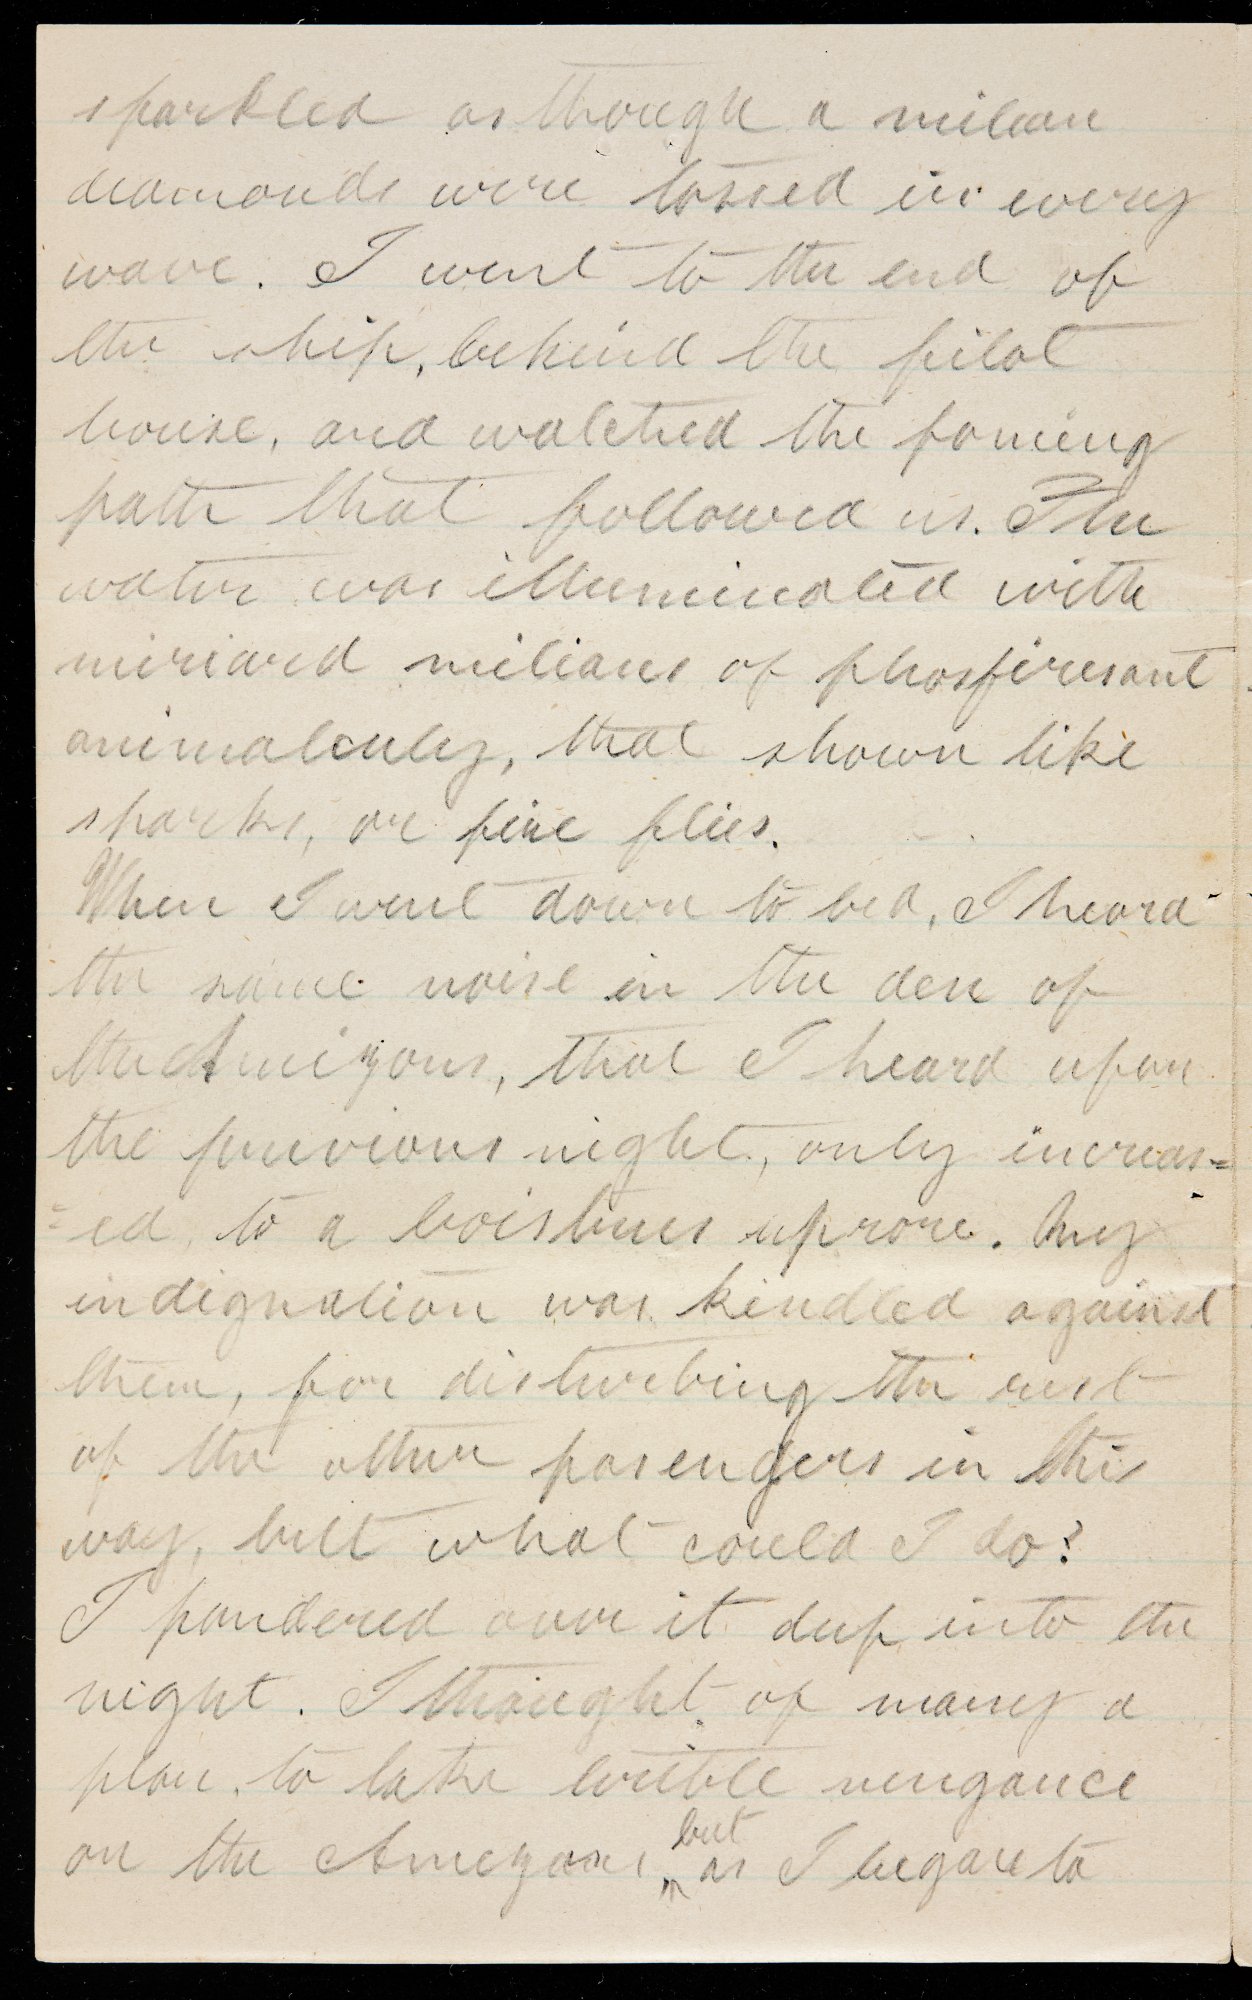 sparkled as though a milion
diamonds were tossed in every
wave. I went to the end of
the ship, behind the pilot
house, and watched the foming
path that followed us. The
water was illuminated with
miriard milians of phosfiresant
animalculy, that shown like
sparks, or fire flies.
When I went down to bed, I heard
the same noise in the den of
the Amizons, that I heard upon
the previous night, only increas=
=ed to a boistrus uprore. My
indignation was kindled against
them, for disturbing the rest
of the other pasengers in this
way, but what could I do?
I pondered over it deep into the
night. I thought of many a
plan to take terible vengance
on the Amezons, but as I began to